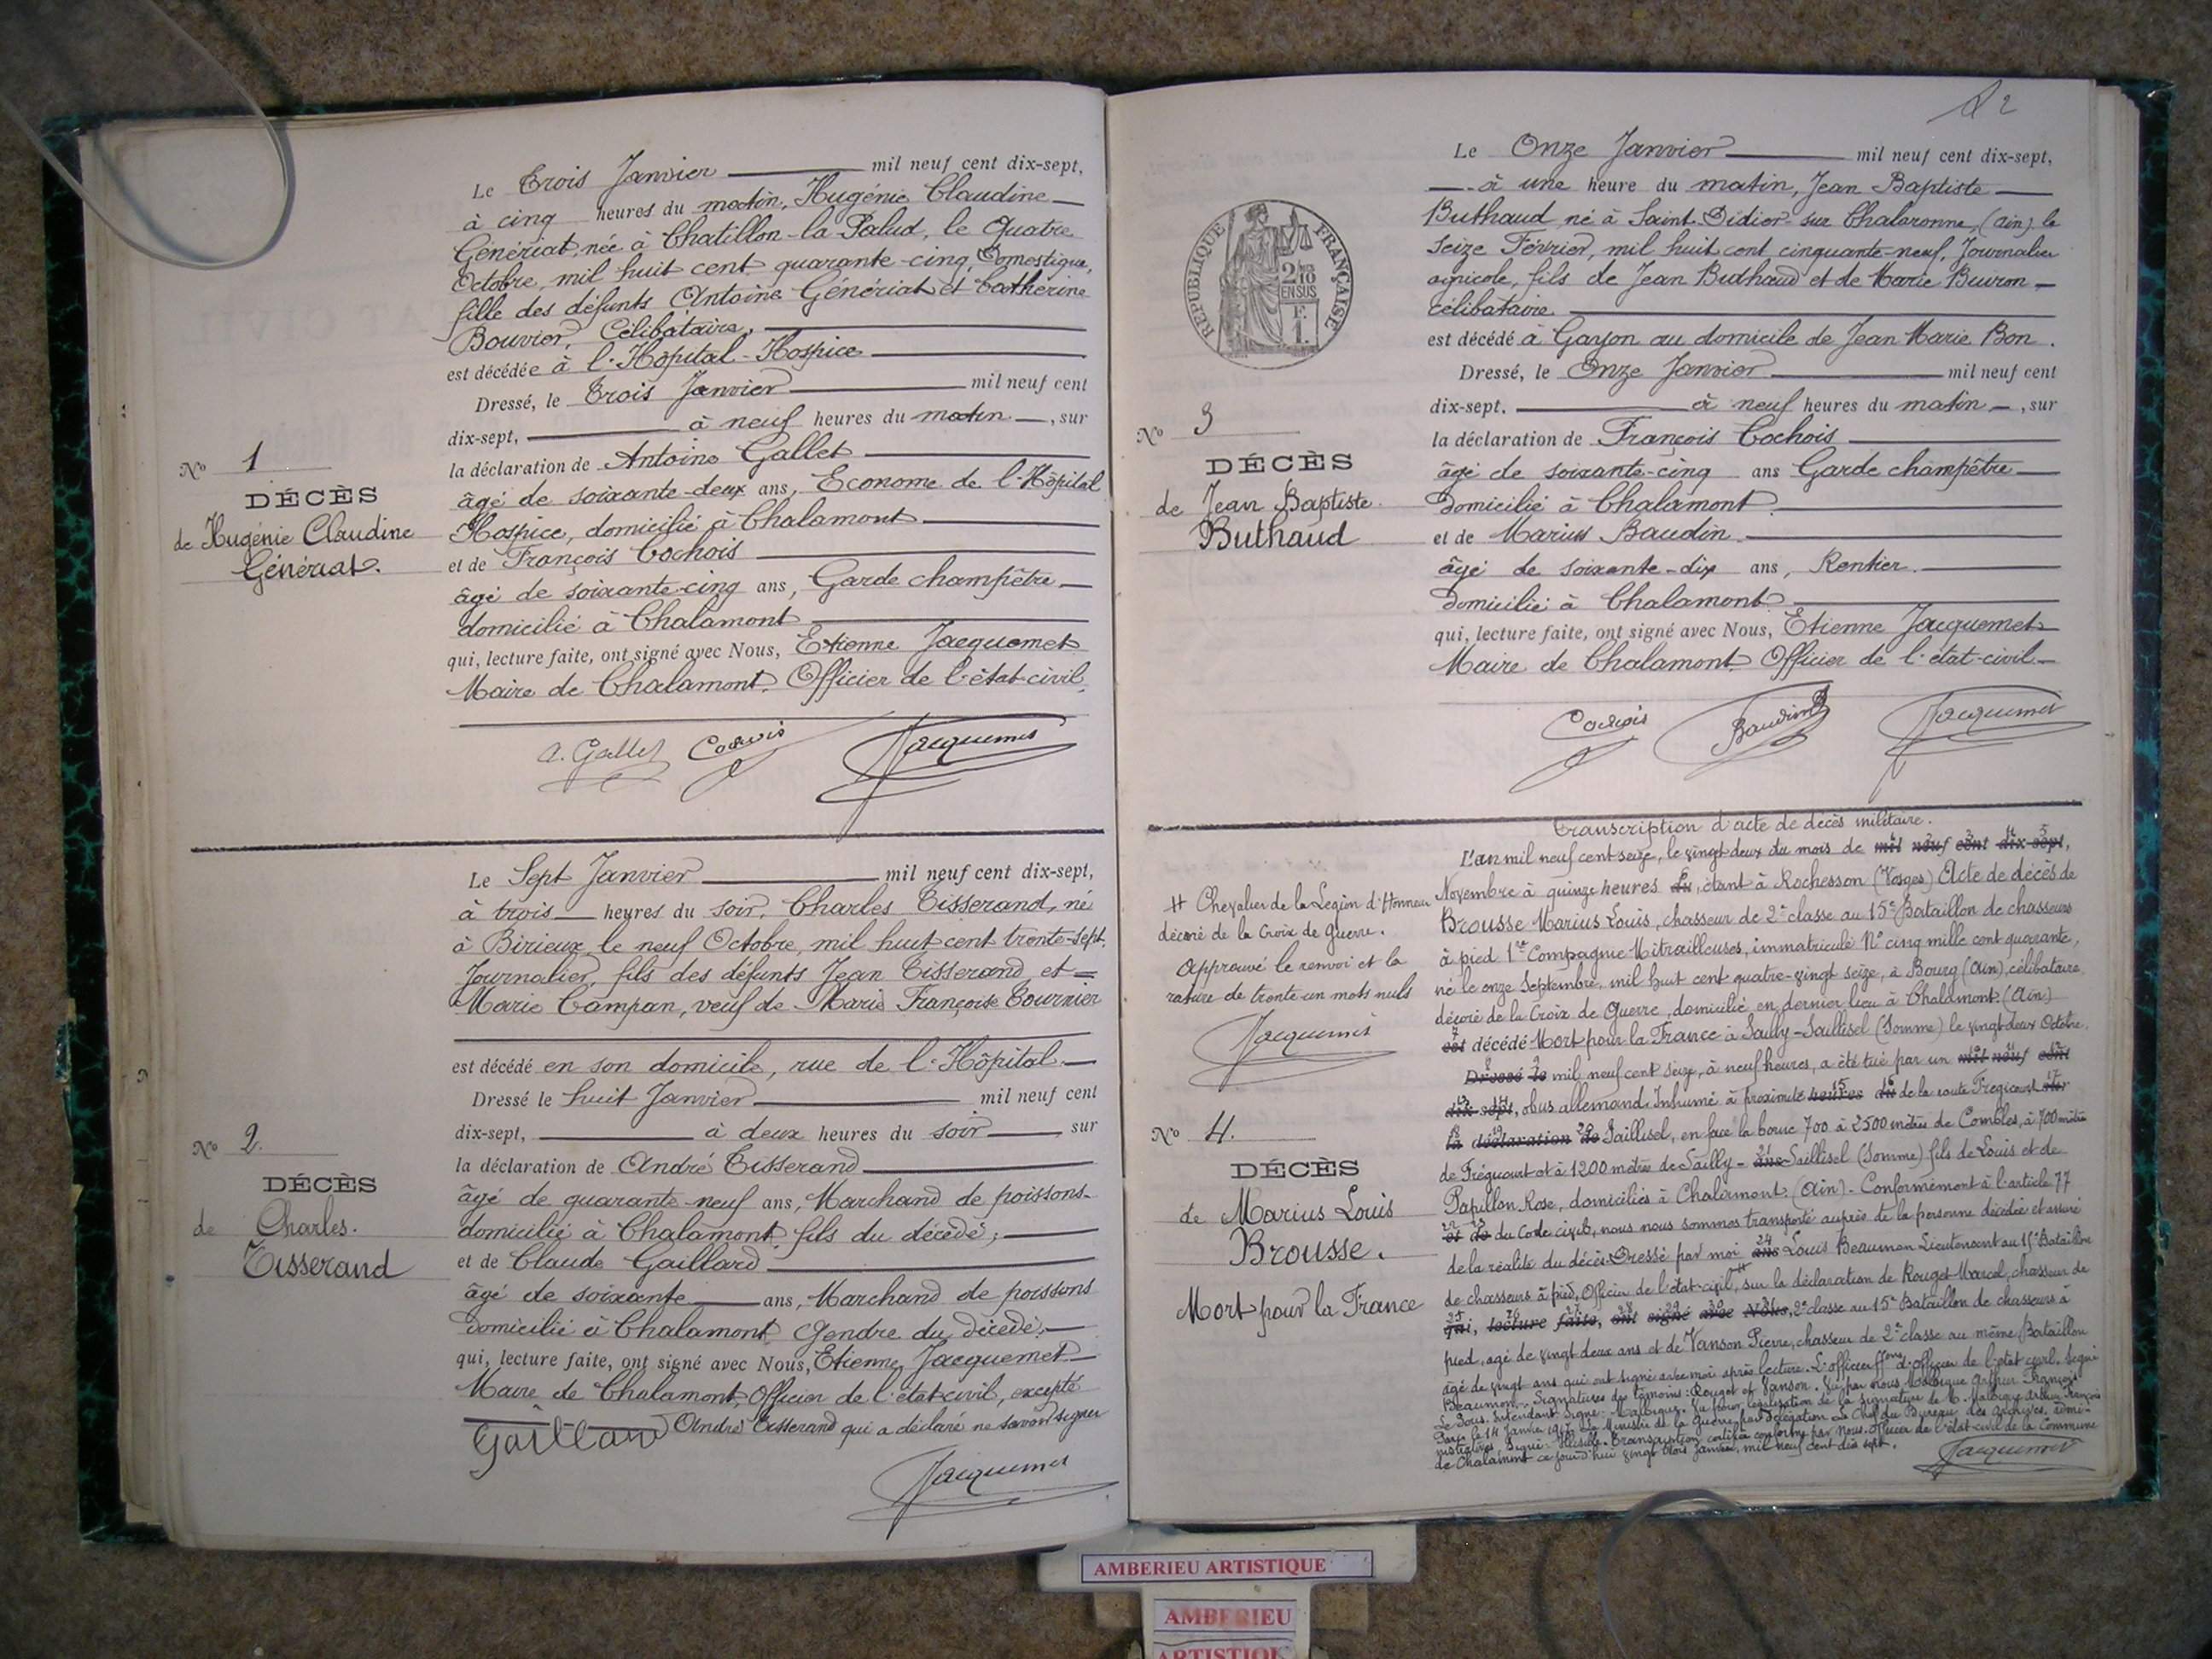 Le Trois Janvier mil neuf cent dix-sept,
à cinq heures du matin, Hugénie Claudine
Génériat, née à Chatillon-la-Palud, le Quatre
Octobre, mil huit cent quarante-cinq, Domestique,
fille des défunts Antoine Génériat et Cathérine
Bouvier, Célibataire,
est décédée à l'Hôpital-Hospice
Dressé, le Trois Janvier mil neuf cent
dix-sept, à neuf heures du matin, sur
la déclaration de Antoine Gallet
âgé de soixante-deux ans, Econome de l'Hôpital
Hospice, domicilié à Chalamont
et de François Cochois
âgé de soixante-cinq ans, Garde champêtre
domicilié à Chalamont
qui, lecture faite, ont signé avec Nous, Etienne Jacquemet
Maire de Chalamont, Officier de l'état-civil,
A. Gallet Cochois Jacquemet
No 1
DÉCÈS
de Hugénie Claudine
Génériat.
Le Sept Janvier mil neuf cent dix-sept,
à trois heures du soir, Charles Tisserand, né
à Birieux, le neuf Octobre, mil huit cent trente-sept,
Journalier, fils des défunts Jean Tisserand, et
Marie Campan, veuf de Marie Françoise Tournier
est décédé en son domicile, rue de l'Hôpital
Dressé le huit Janvier mil neuf cent
dix-sept, à deux heures du soir, sur
la déclaration de André Tisserand
âgé de quarante-neuf ans, Marchand de poissons
domicilié à Chalamont, fils du décédé;
et de Claude Gaillard
âgé de soixante ans, Marchand de poissons
domicilié à Chalamont, Gendre du décédé,
qui, lecture faite, ont signé avec Nous, Etienne Jacquemet
Maire de Chalamont, Officier de l'état-civil, excepté
André Tisserand qui a déclaré ne savoir signer
Gaillard
Jacquemet
No 2.
DÉCÈS
de Charles.
Tisserand
2
Le Onze Janvier mil neuf cent dix-sept,
à une heure du matin, Jean Baptiste
Buthaud, né à Saint-Didier-sur Chalaronne, (Ain) le
Seize Février, mil huit cent cinquante-neuf, Journalier
agricole, fils de Jean Buthaud et de Marie Buiron
célibataire.
est décédé à Gayon au domicile de Jean Marie Bon.
Dressé, le Onze Janvier mil neuf cent
dix-sept. à neuf heures du matin, sur
la déclaration de François Cochois
âgé de soixante-cinq ans Garde champêtre
domicilié à Chalamont
et de Marius Baudin
âgé de soixante-dix ans, Rentier.
domicilié à Chalamont
qui, lecture faite, ont signé avec Nous, Etienne Jacquemet
Maire de Chalamont Officier de l'état-civil
Cochois Baudin Jacquemet
RÉPUBLIQUE FRANÇAISE
2/10
EN SUS
F.
1.
No 3
DÉCÈS
de Jean Baptiste
Buthaud
Transcription d'acte de décès militaire.
L'an mil neuf cent seize, le vingt deux du mois de mil neuf cent dix-sept,
Novembre à quinze heures du, étant à Rochesson (Vosges) Acte de décès de
Brousse Marius Louis, chasseur de 2e classe au 15e Bataillon de chasseurs
à pied 1re Compagnie Mitrailleuses, immatriculé No cinq mille cent quarante,
né le onze Septembre, mil huit cent quatre-vingt seize, à Bourg (Ain), célibataire
décoré de la Croix de Guerre, domicilié en dernier lieu à Chalamont. (Ain)
est décédé Mort pour la France à Sailly-Saillisel (Somme) le vingt deux Octobre.
Dressé le mil neuf cent seize, à neuf heures, a été tué par un mil neuf cent
dix-sept, obus allemand. Inhumé à proximité heures du de la route Fregicourt sur
la déclaration de Saillisel, en face la borne 700 à 2500 mètres de Combles, à 700 mètres
de Frégicourt et à 1200 mètres de Sailly- âgé Saillisel (Somme) fils de Louis et de
Papillon Rose, domiciliés à Chalamont. (Ain). Conformément à l'article 77
et de du Code civil, nous nous sommes transporté auprès de la personne décédée et assuré
de la réalité du décès. Dressé par moi ans Louis Beaumon Lieutenant au 15e Bataillon
de chasseurs à pied, Officier de l'état-civil, sur la déclaration de Rouget Marcel, chasseur de
qui, lecture faite, ont signé avec Nous, 2e classe au 15e Bataillon de chasseurs à
pied, agé de vingt deux ans et de Vanson Pierre, chasseur de 2e classe au même Bataillon
âgé de vingt ans qui ont signé avec moi après lecture. L'officier ffons d'officier de l'état civil. Signé
Beaumon. Signatures des témoins: Rouget et Vanson. Vu par nous Malbique Arthur François
Le Sous-Intendant Signé: Malbique. Vu pour légalisation de la signature de M. Malbique Arthur François
Paris le 14 Janvier 1917. Le Ministre de la Guerre, par Délégation Le Chef du Bureau des Archives admi-
nistratives Signé: Transcription certifiée conforme par Nous. Officier de l'état-civil de la Commune
de Chalamont ce jourd'hui vingt trois Janvier, mil neuf cent dix sept.
Jacquemet
# Chevalier de la Légion d'Honneur
décoré de la Croix de Guerre.
Approuvé le renvoi et la
rature de trente un mots nuls
Jacquemet
No 4.
DÉCÈS
de Marius Louis
Brousse.
Mort pour la France
AMBERIEU ARTISTIQUE
AMBERIEU
ARTISTIQUE